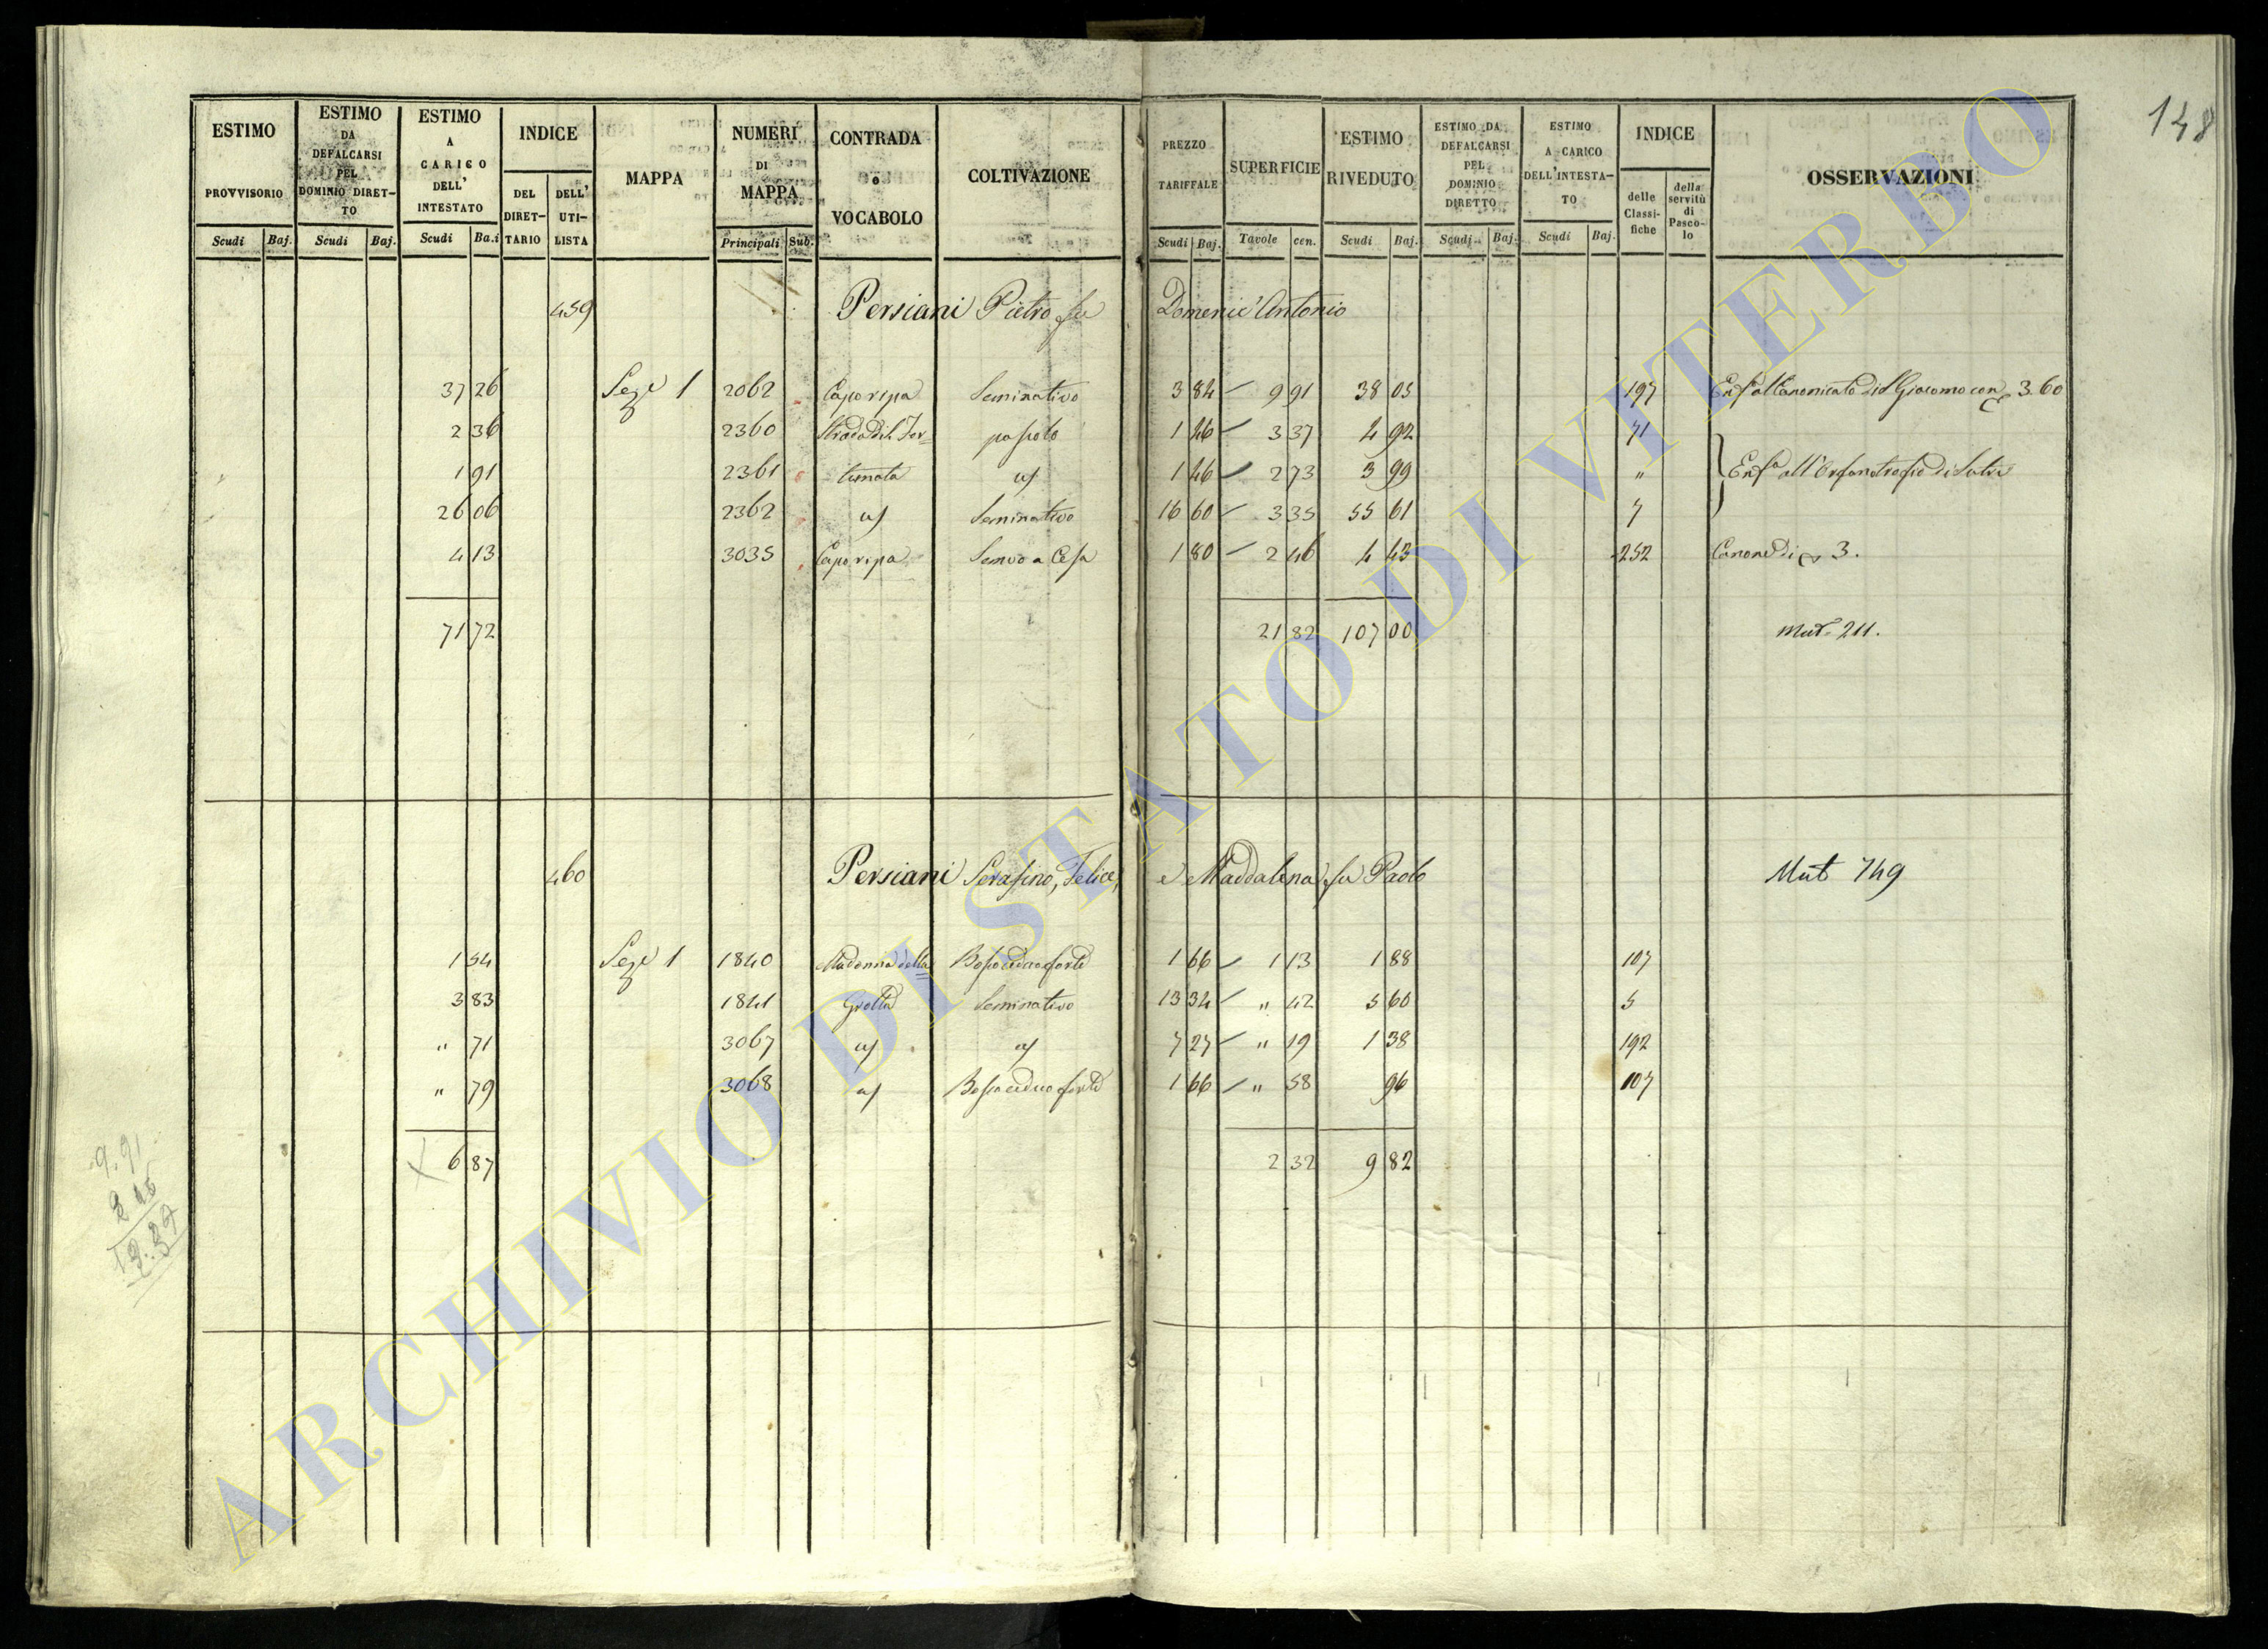 148
ESTIMO PROVVISORIO | ESTIMO DA DEFALCARSI PEL DOMINIO DIRETTO | ESTIMO A CARICO DELL' INTESTATO | INDICE | MAPPA | NUMERI DI MAPPA | CONTRADA o VOCABOLO | COLTIVAZIONE | PREZZO TARIFFALE | SUPERFICIE | ESTIMO RIVEDUTO | ESTIMO DA DEFALCARSI PEL DOMINIO DIRETTO | ESTIMO A CARICO DELL'INTESTATO | INDICE | OSSERVAZIONI
DEL DIRETTARIO | DELL' UTILISTA | delle Classifiche | della servitù di Pascolo
Scudi | Baj. | Scudi | Baj. | Scudi | Ba.i | Principali | Sub. | Scudi | Baj. | Tavole | cen. | Scudi | Baj. | Scudi | Baj. | Scudi | Baj.
459 Persiani Pietro fu Domenic'Antonio
37 26 Seze 1 2062 Caporipa Seminativo 3 84 9 91 38 05 197 Enfa al Canonicato di S Giacomo con 3.60
2 36 2360 Strada di S. For= pascolo 1 46 3 37 4 92 71
1 91 2361 tunata a/ 1 46 2 73 3 99 " Enfa all'Orfanotrofio di Sutri
26 06 2362 a/ Seminativo 16 60 3 35 55 61 7
4 13 3035 Caporipa Semvo a Cesa 1 80 2 46 4 43 252 Canone di 3.
71 72 21 82 107 00 Mut. 211.
460 Persiani Serafino, Felice, e Maddalena fu Paolo Mut 749
1 54 Seze 1 1840 Madonna della Bosco ceduo forte 1 66 1 13 1 88 107
3 83 1841 Grotta Seminativo 13 34 " 42 5 60 5
" 71 3067 a/ a/ 7 27 " 19 1 38 192
" 79 3068 a/ Bosco ceduo forte 1 66 " 58 96 107
6 87 2 32 9 82
9.91
ARCHIVIO DI STATO DI VITERBO